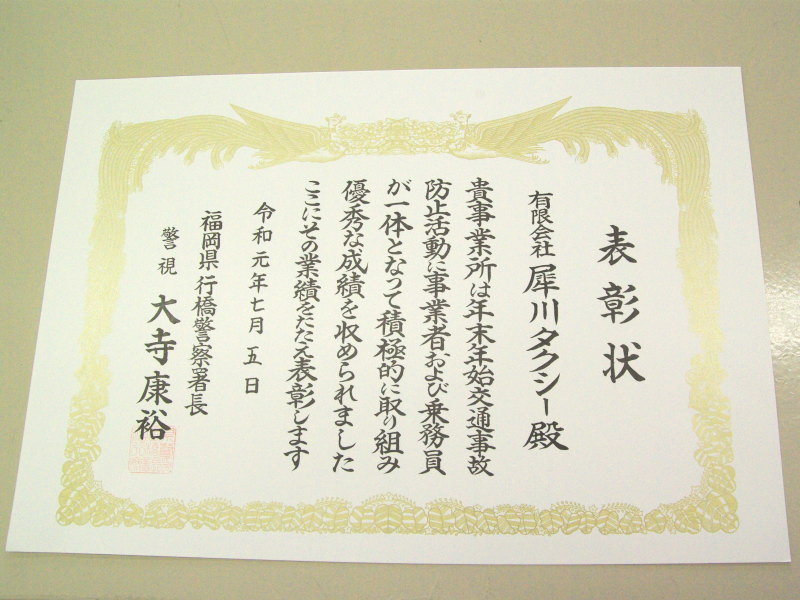 表彰状
有限会社 犀川タクシー殿
貴事業所は年末年始交通事故
防止活動に事業者および乗務員
が一体となって積極的に取り組み
優秀な成績を収められました
ここにその業績をたたえ表彰します
令和元年七月五日
福岡県行橋警察署長
警視 大寺康裕